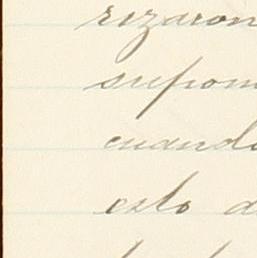 rizaron
supon
cuando
esto a